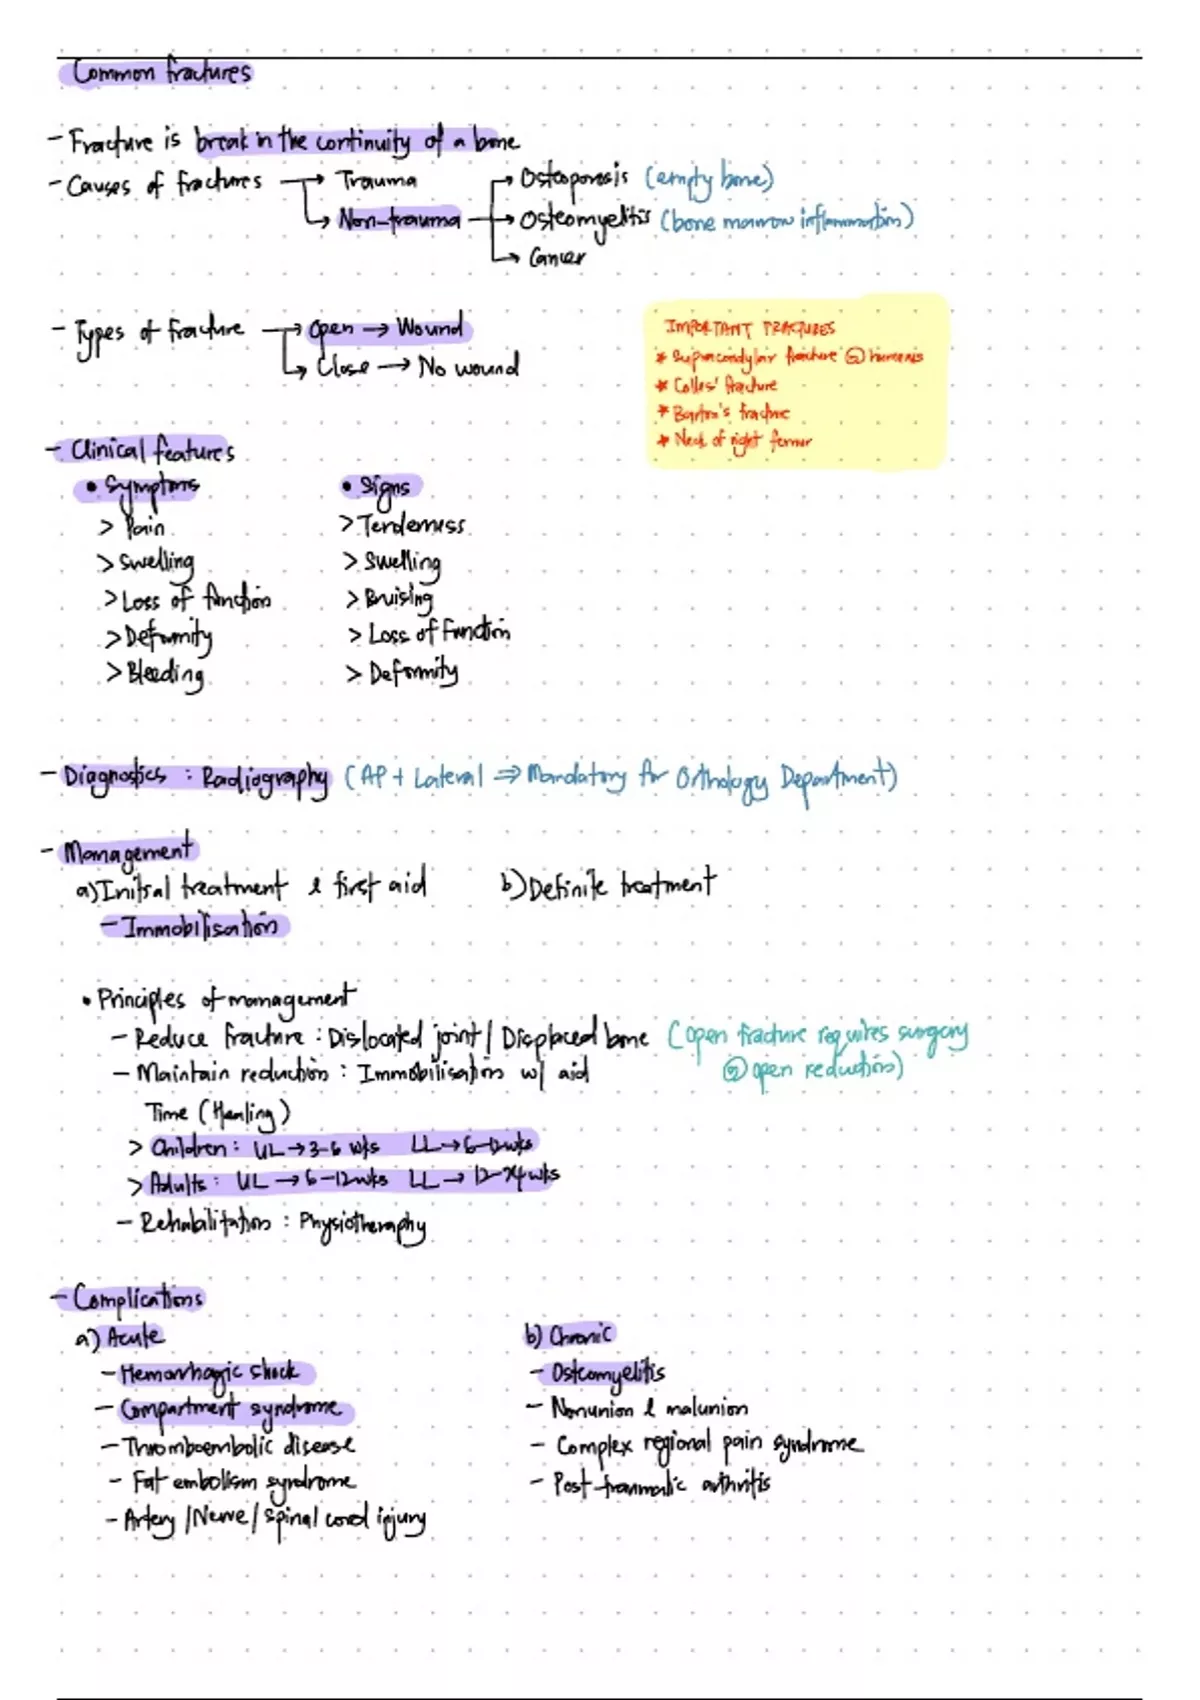 Common fractures
- Fracture is break in the continuity of a bone
- Causes of fractures → Trauma
→ Non-trauma → Osteoporosis (empty bone)
→ Osteomyelitis (bone marrow inflammation)
→ Cancer
- Types of fracture → Open → Wound
→ Close → No wound
IMPORTANT FRACTURES
* Supracondylar fracture @ humerus
* Colles' fracture
* Barton's fracture
* Neck of right femur
- Clinical features
• Symptoms
> Pain
> Swelling
> Loss of function
> Deformity
> Bleeding
• Signs
> Tenderness
> Swelling
> Bruising
> Loss of function
> Deformity
- Diagnostics : Radiography (AP + Lateral ⇒ Mandatory for Orthology Department)
- Management
a) Initial treatment & first aid
- Immobilisation
b) Definite treatment
• Principles of management
- Reduce fracture : Dislocated joint / Displaced bone (open fracture requires surgery
@ open reduction)
- Maintain reduction : Immobilisation w/ aid
Time (Healing)
> Children : UL → 3-6 wks LL → 6-12 wks
> Adults : UL → 6-12 wks LL → 12-24 wks
- Rehabilitation : Physiotheraphy
- Complications
a) Acute
- Hemorrhagic shock
- Compartment syndrome
- Thromboembolic disease
- Fat embolism syndrome
- Artery / Nerve / Spinal cord injury
b) Chronic
- Osteomyelitis
- Nonunion & malunion
- Complex regional pain syndrome
- Post-traumatic arthritis